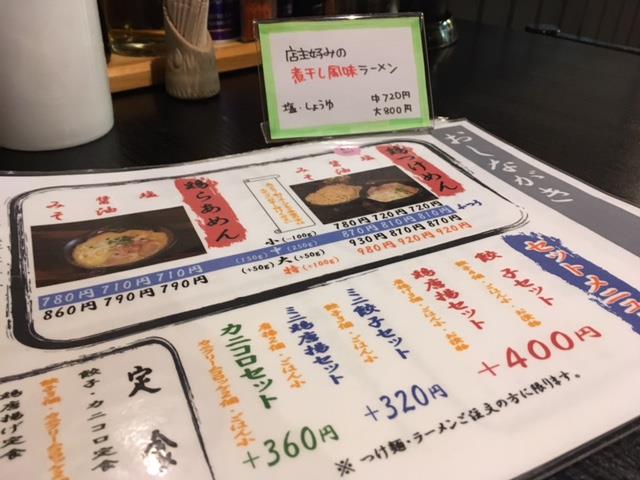 店主好みの
煮干し風味ラーメン
塩・しょうゆ 中720円
大800円
おしながき
鶏つけめん
塩
醤油
みそ
780円 720円 720円
870円 810円 810円
930円 870円 870円
980円 920円 920円
小(-100g)
(150g) 中 (250g) ふつう
(+50g) 大 (+50g)
特 (+100g)
鶏らあめん
塩
醤油
みそ
780円 710円 710円
860円 790円 790円
セットメニュ
餃子セット
鶏唐揚セット
+400円
ミニ餃子セット
ミニ鶏唐揚セット
+320円
カニコロセット
+360円
※つけ麺・ラーメンご注文の方に限ります。
定食
餃子・カニコロ定食
鶏唐揚定食